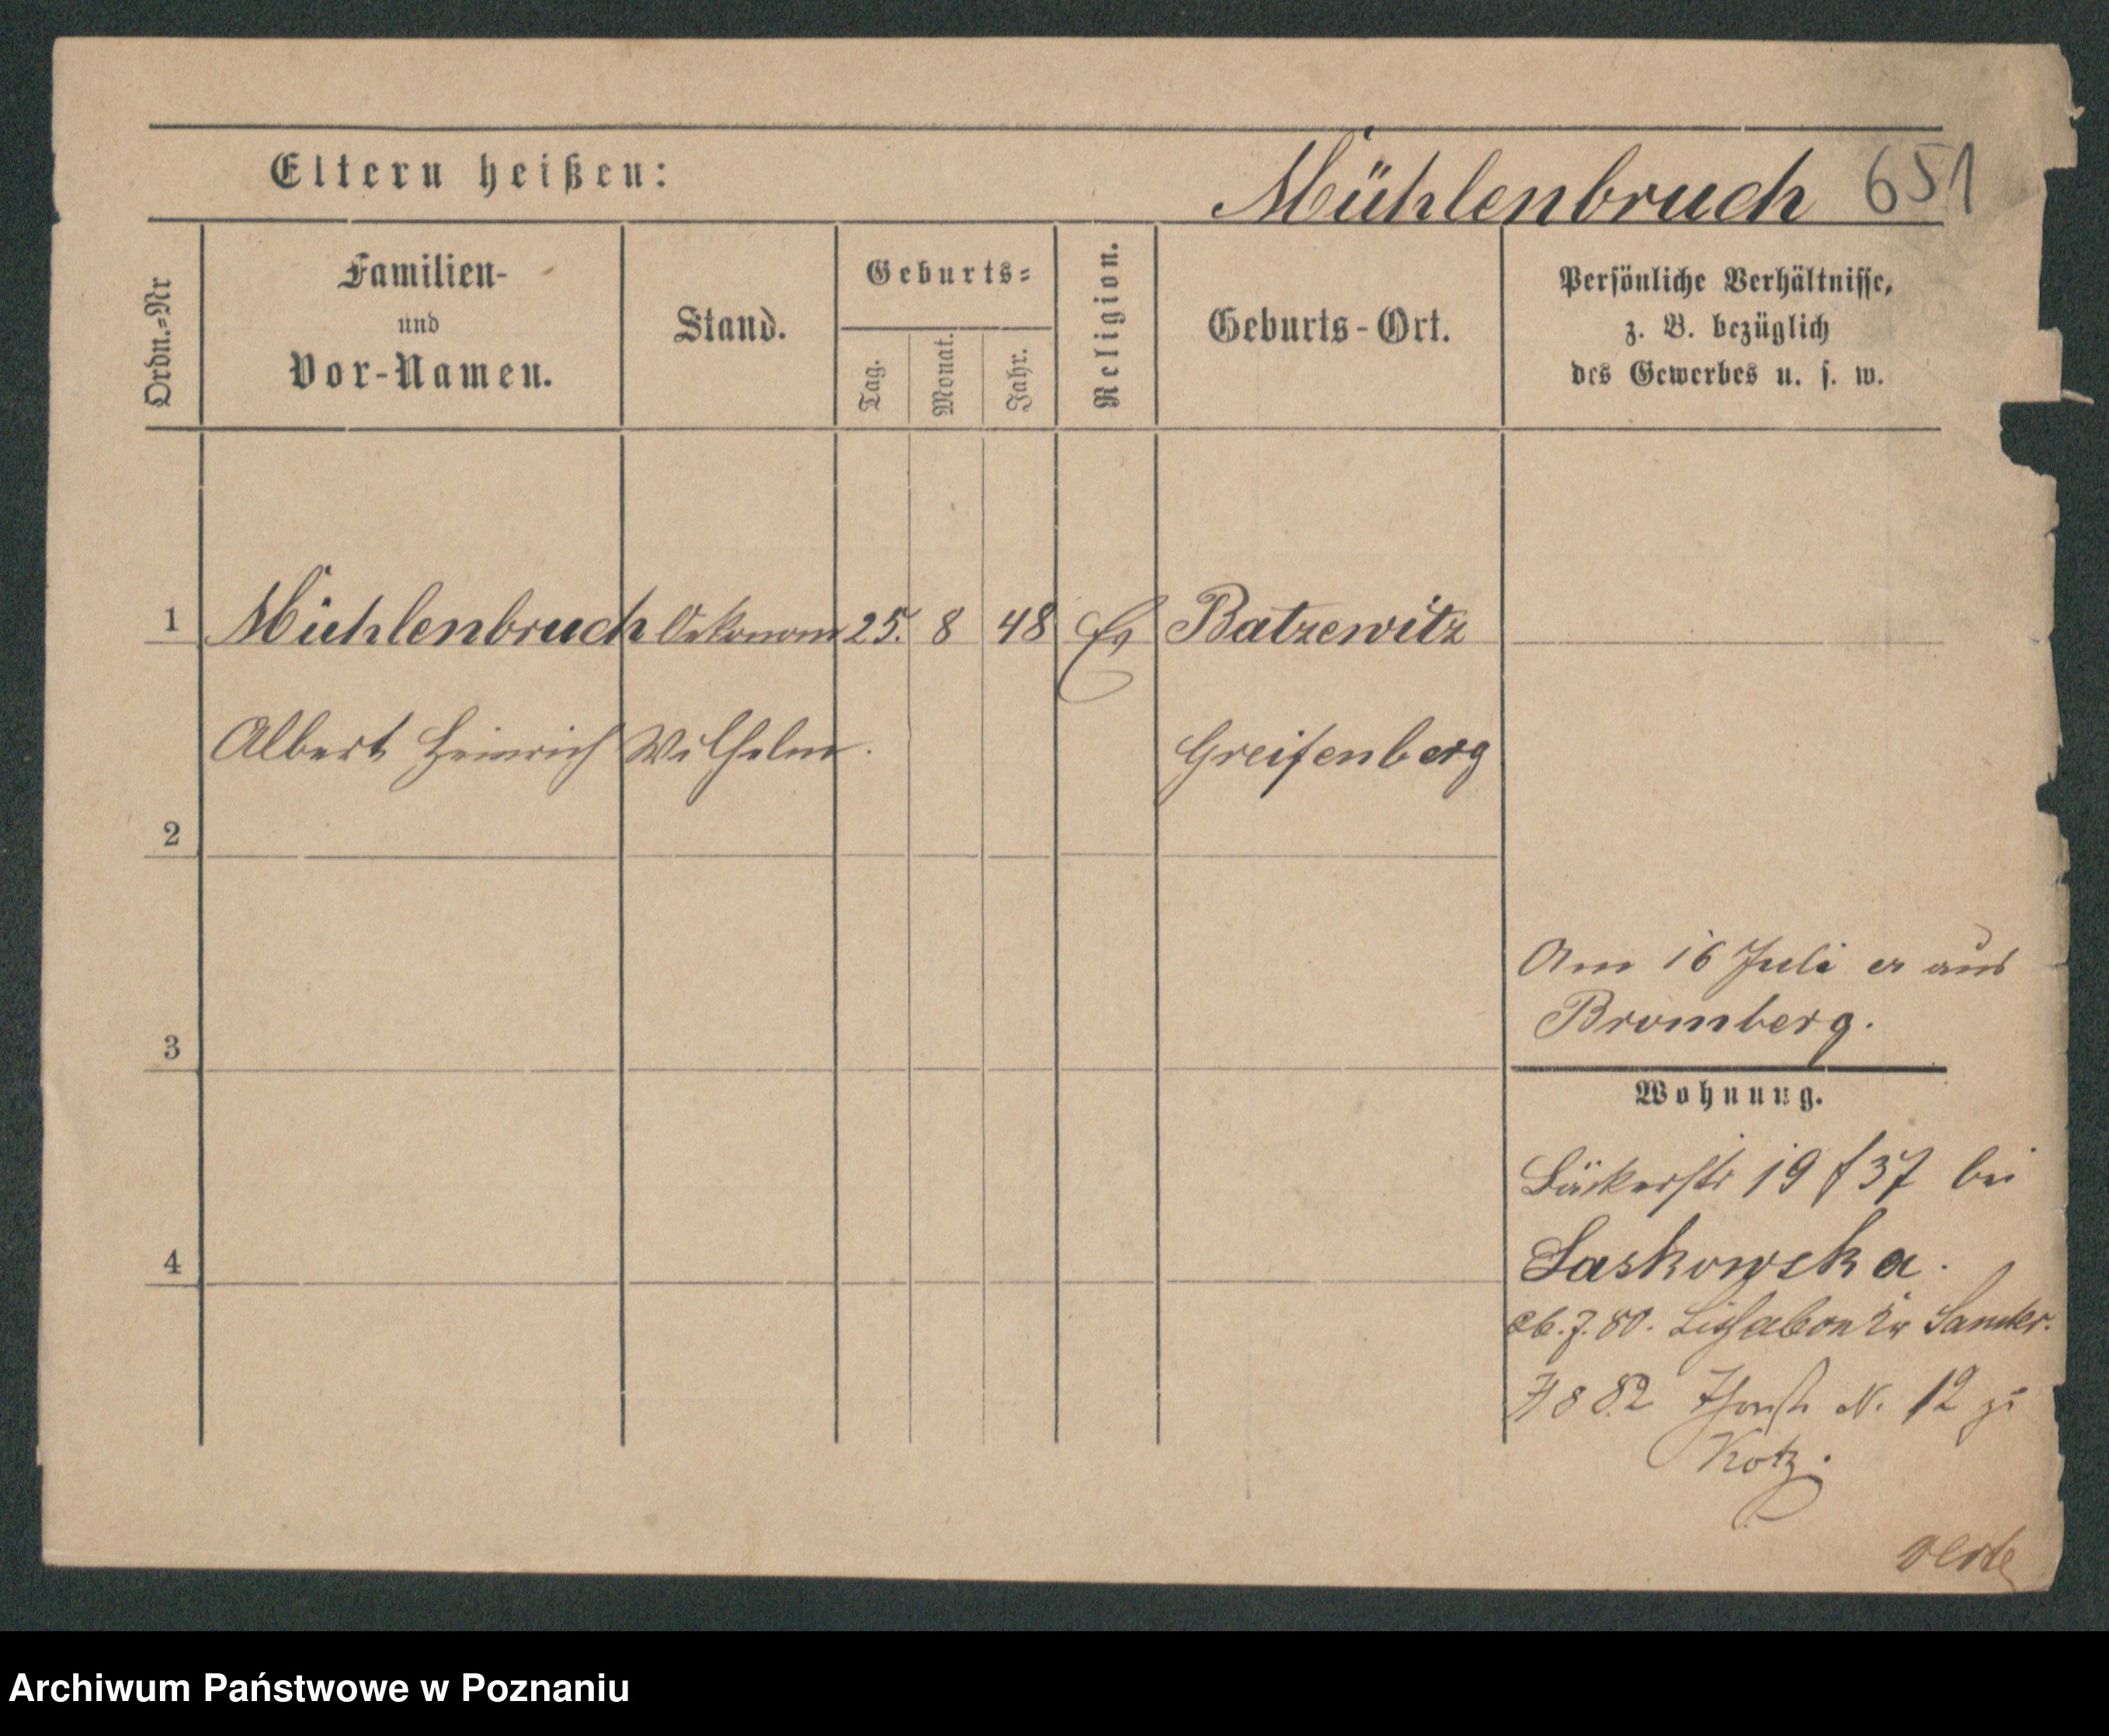 Eltern heißen:
Mühlenbruch 651
Ordn.=Nr
Familien-
und
Vor-Namen.
Stand.
Geburts=
Tag.
Monat.
Jahr.
Religion.
Geburts-Ort.
Persönliche Verhältnisse,
z. B. bezüglich
des Gewerbes u. s. w.
1 Mühlenbruch Oekonom 25. 8 48 Ev Batzewitz
Albert Heinrich Wilhelm. Greifenberg
2
Am 16 Juli er aus
Bromberg.
3
Wohnung.
Bäckerstr 19 f 37 bei
Laskowska.
4
7. 80. Samter.
8 82 N. 12 zu
Kotz.
Archiwum Państwowe w Poznaniu